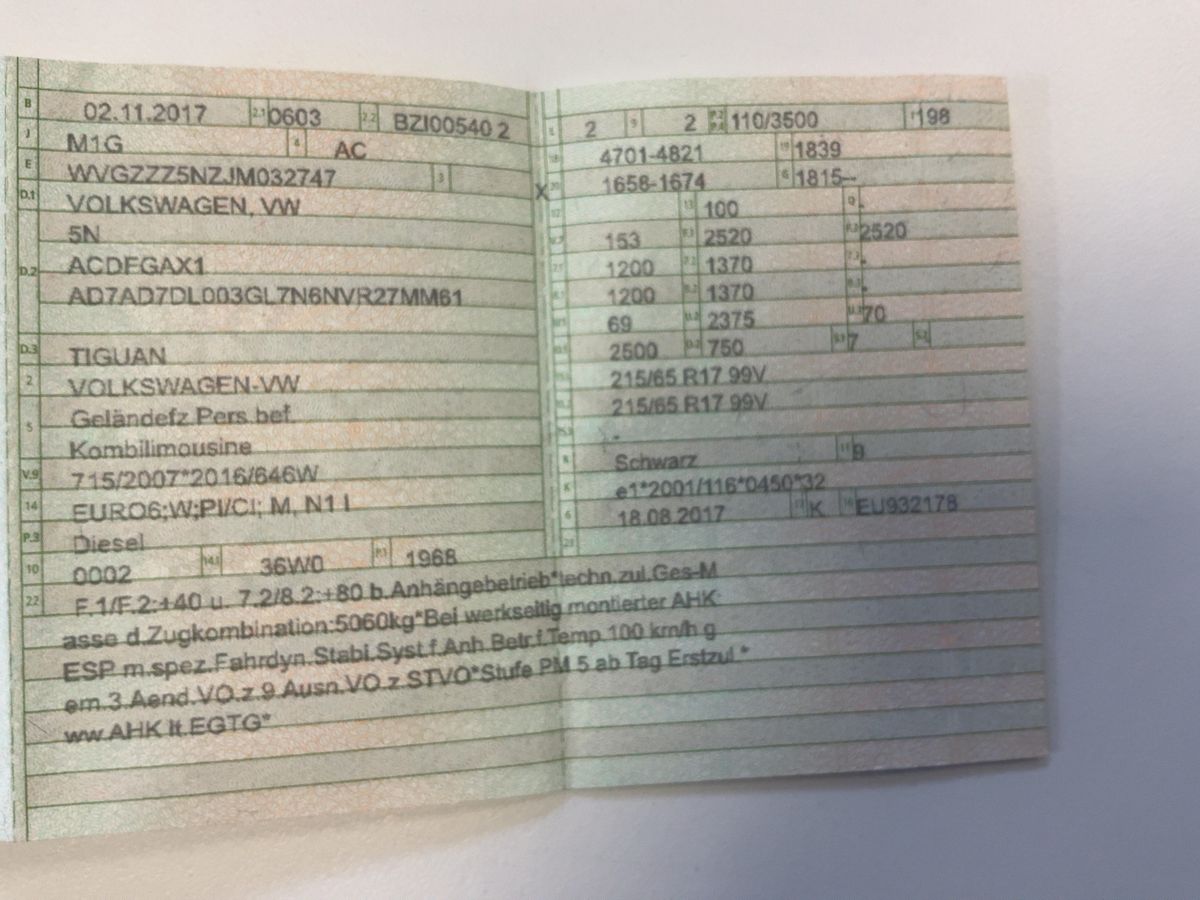 B 02.11.2017 2.1 0603 2.2 BZI00540 2
J M1G 4 AC
E WVGZZZ5NZJM032747 3
D.1 VOLKSWAGEN, VW
5N
D.2 ACDFGAX1
AD7AD7DL003GL7N6NVR27MM61
D.3 TIGUAN
2 VOLKSWAGEN-VW
5 Geländefz.Pers.bef.
Kombilimousine
V.9 715/2007*2016/646W
14 EURO6;W;PI/CI; M, N1 I
P.3 Diesel
10 0002 14.1 36W0 P.1 1968
L 2 9 2 P.2 P.4 110/3500 T 198
18 4701-4821 19 1839
X 20 1658-1674 G 1815--
12 - 13 100 Q -
V.7 153 F.1 2520 F.2 2520
7.1 1200 7.2 1370 7.3 -
8.1 1200 8.2 1370 8.3 -
U.1 69 U.2 2375 U.3 70
O.1 2500 O.2 750 S.1 7 S.2
15.1 215/65 R17 99V
15.2 215/65 R17 99V
15.3 -
R Schwarz 11 9
K e1*2001/116*0450*32
6 18.08.2017 17 K 16 EU932178
21
22 F.1/F.2:+40 u. 7.2/8.2:+80 b.Anhängebetrieb*techn.zul.Ges-M
asse d.Zugkombination:5060kg*Bei werkseitig montierter AHK
ESP m.spez.Fahrdyn.Stabi.Syst.f.Anh.Betr.f.Temp.100 km/h g
em.3.Aend.VO.z.9.Ausn.VO.z.STVO*Stufe PM 5 ab Tag Erstzul.*
ww.AHK lt.EGTG*